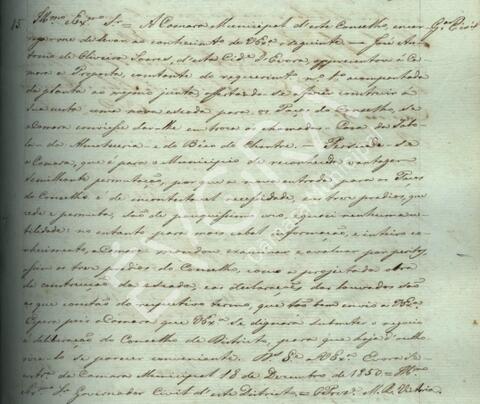 15 Illmo. Exmo. Sr. = A Camara Municipal d'este Concelho, encar Gor. Civil
rega-me de levar ao conhecimto. de V.Exa. o seguinte = José An-
tonio de Oliveira Soares, d'esta Cide. d'Evora apprezentou á Ca-
mara a Proposta, constante do requerimto. nº 1º acompanhada
da planta ao mesmo junta, offertando-se a fazer construir á
sua custa uma nova escada para os Paços do Concelho, se
a Camara conviesse dar-lhe em troca as chamadas = Casa da Tabo-
la - da Almotaceria - e do Bêco do Chantre. = Persuade-se
a Camara, que é para o Municipio de reconhecida vantagem
similhante permutação, porque a nova entrada para os Paços
do Concelho é de incontestavel necessidade, e os tres predios, que
cede e permuta, são de pequenissimo uzo, e quasi nenhuma u-
tilidade: no entanto para mais cabal informação, e inteiro co-
nhecimento, a Camara mandou examinar e avaliar por peritos,
assim os tres predios do Concelho, como a projectada obra
de construcção da escada, e as declarações dos louvados são
as que constão do respectivo termo, que tão bem envio a V.Exa.
Espera pois a Camara que V.Exa. se dignará submetter o negocio
á deliberação do Concelho de Districto, para que haja d'resol-
ver-se lo se parecer conveniente. Ds. Ge. a V.Exa. Evora Se-
cretra. da Camara Municipal 18 de Dezembro de 1850 = Illmo.
Exmo. Sr. Governador Civil d'este Districto = O Presede. M. de Victoria